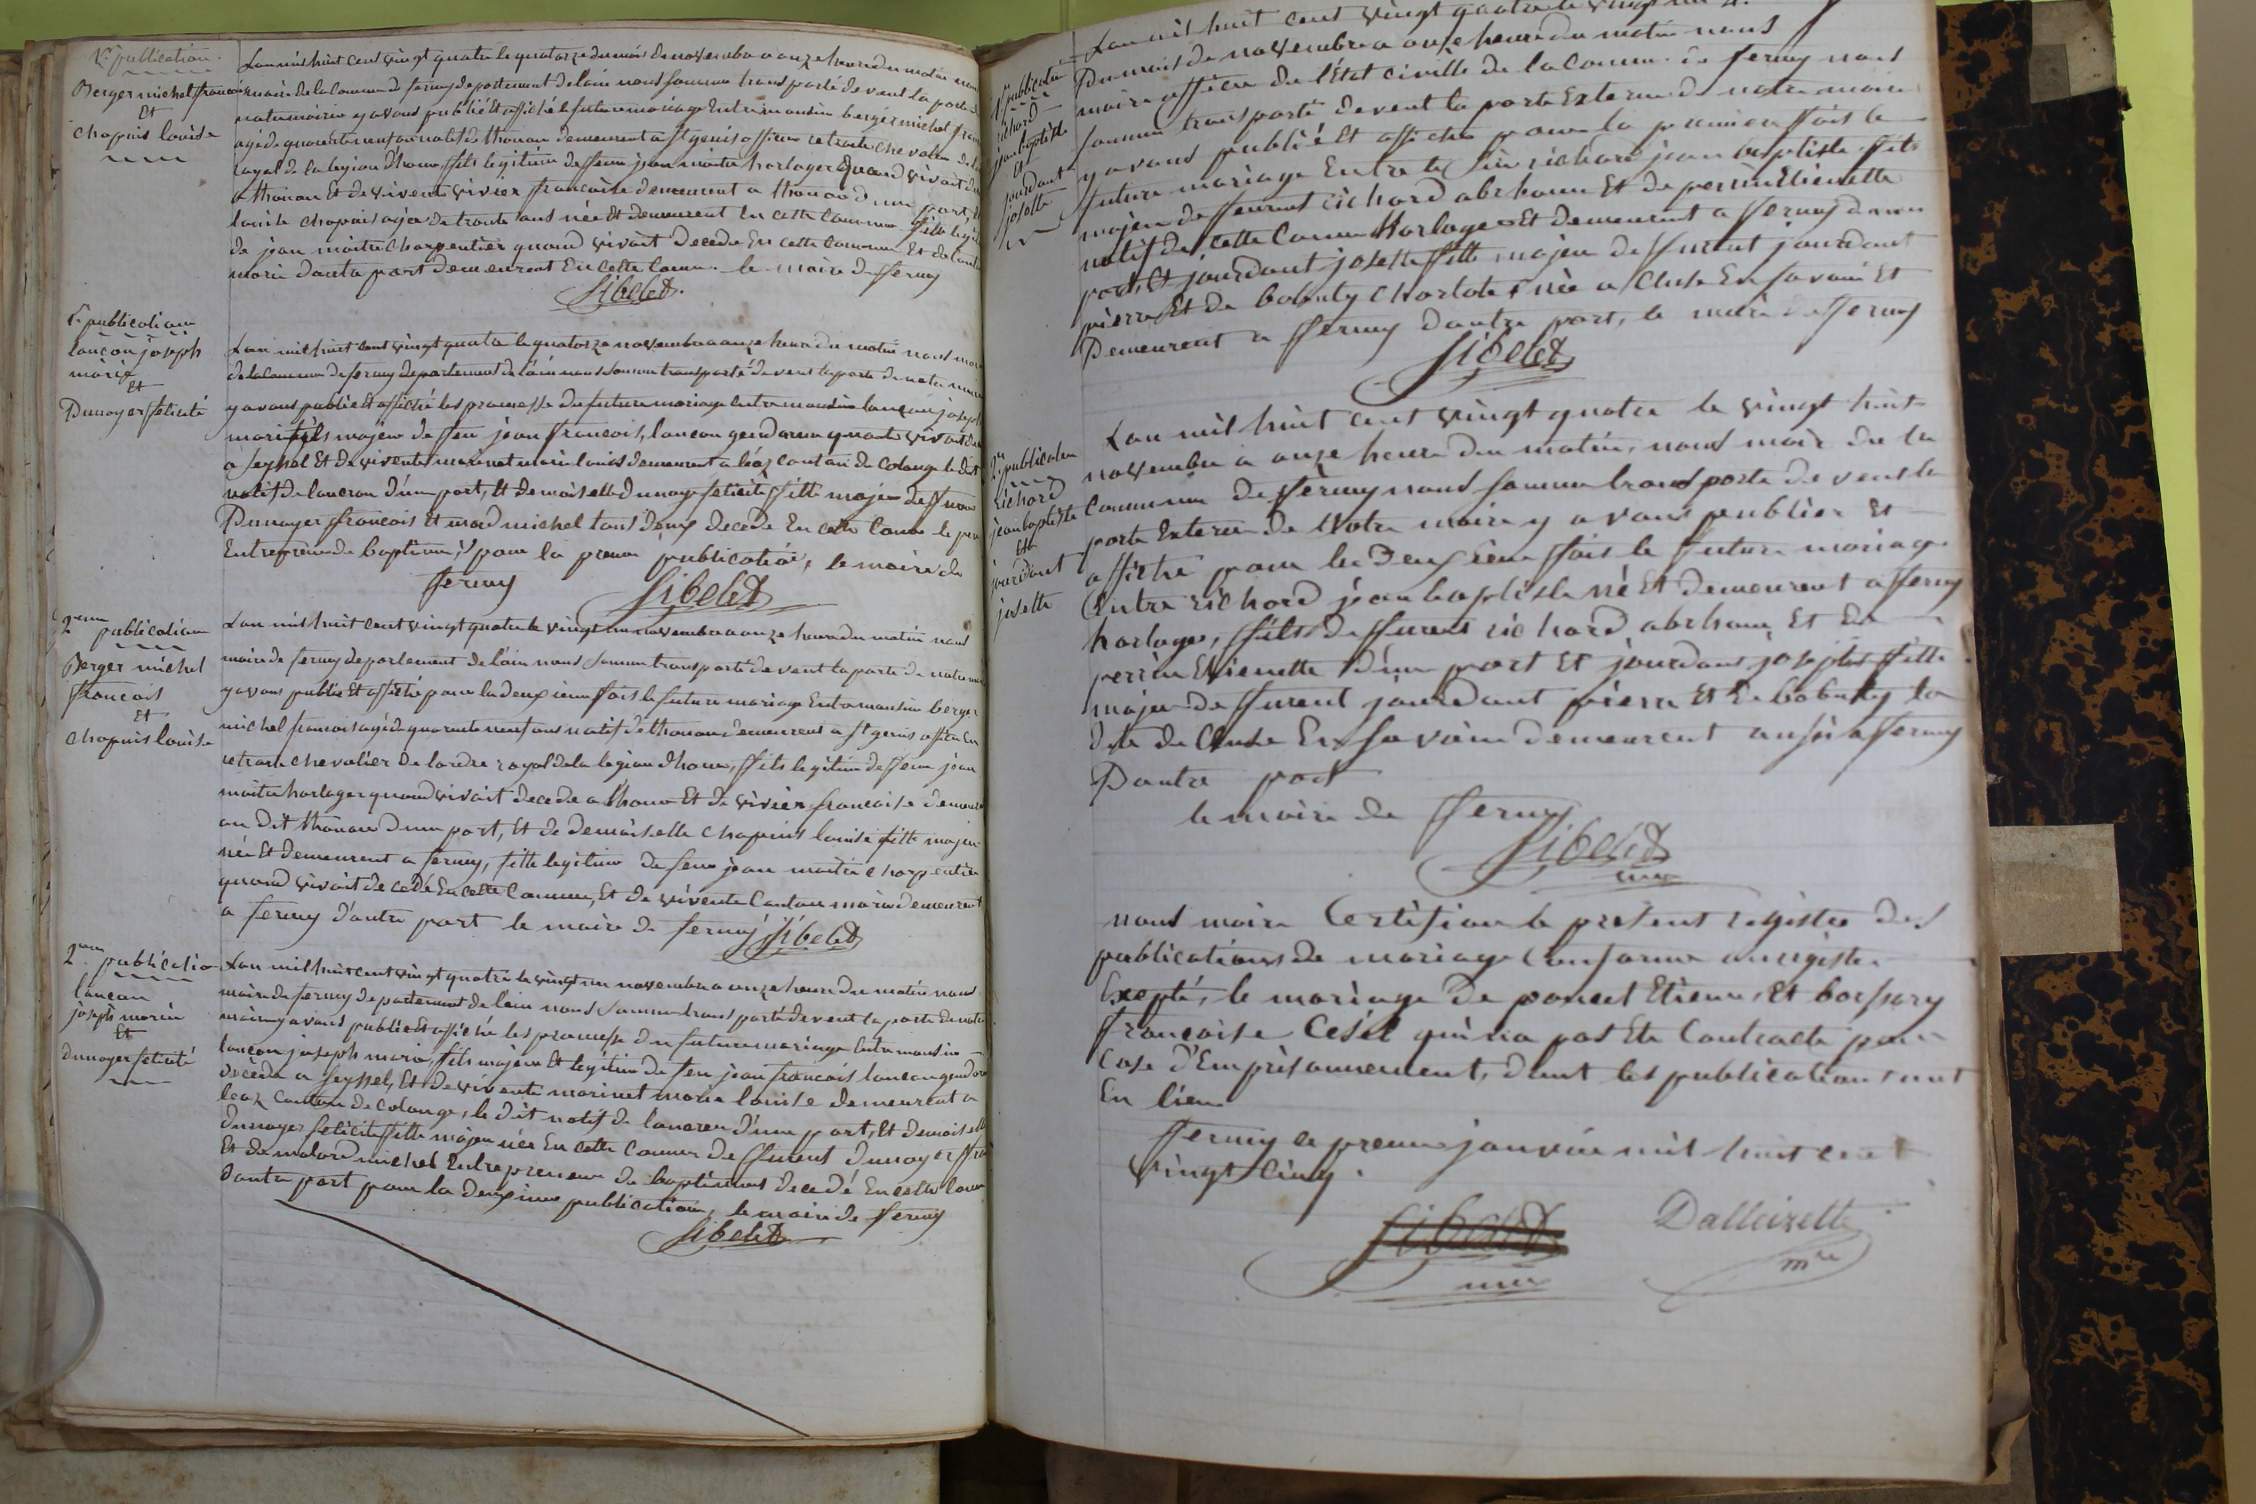 1re publication
Berger michel francois
Et
chapuis louise
Lan mil huit cent vingt quatre le quatorze du mois de novembre a onze heure du matin nous
maire de la commune de ferney departement de lain nous somme transporté devent la porte de
notre mairie y avons publié Et affiché le future mariage Entre monsieur berger michel francois
agé de quarente neuf ans natif de thonon demeurent a st genis officier retraité chevalier de lordre
royal de la legion dhoneur fils legitime de feu jean maitre horloger quand vivait decede
a thonon Et de vivente vivier francoise demeurent a thonon d'une part, Et
louise chapuis agée de trente ans née Et demeurent En cette commune fille legitime
de jean maitre charpentier quand vivait decede En cette commune Et de
marie dautre part demeurent En cette commune le maire de fferney
Sibelet
1re publication
lancon joseph
marie
Et
Dunoyer felicité
Lan mil huit cent vingt quatre le quatorze novembre a onze heure du matin nous maire
de la commune de ferney departement de lain nous somme transporté devent la porte de notre mairie
y avons publié Et affiché les promesse du future mariage entre monsieur lancon joseph
marie fils majeur de feu jean francois, lancon gendarme quand vivait decede
a seyssel Et de vivente marinet marie louise demeurent a léaz canton de colonge le dit
natif de lancran d'une part, Et demoiselle dunoyer felicité fille majeur de ffeu
Dunoyer francois Et michel tous deux decede En cette commune le
Entrepreneur de baptiment pour la premier publication, le maire de
ferney Sibelet
2eme publication
Berger michel
francois
et
chapuis louise
Lan mil huit cent vingt quatre le vingt un novembre a onze heure du matin nous
maire de ferney departement de lain nous somme transporté devent la porte de notre mairie
y avons publié Et affiché pour la deuxieme fois le future mariage Entre monsieur berger
michel francois agé de quarente neuf ans natif de thonon demeurent a st genis officier En
retraite chevalier de lordre royal de la legion dhoneur, ffils legitime de ffeu jean
maitre horloger quand vivait decede a thonon Et de vivier francoise demeurent
au dit thonon d'une part, Et de demoiselle chapuis louise fille majeur
née Et demeurent a ferney, fille legitime de feu jean maitre charpentier
quand vivait decedé En cette commune, Et de vivente marie demeurent
a ferney d'autre part le maire de ferney Sibelet
2eme publication
lancon
joseph marie
Et
dunoyer felicité
Lan mil huit cent vingt quatre le vingt un novembre a onze heure du matin nous
maire de ferney departement de lain nous somme transporté devent la porte de notre
mairie y avons publié Et affiché les promesse du future mariage Entre monsieur
lancon joseph marie fils majeur Et legitime de feu jean francois lancon gendarme
decede a seyssel, Et de vivente marinet marie louise demeurent a
leaz canton de colonge, le dit natif de lancran d'une part, Et demoiselle
dunoyer felicité ffille majeur née En cette commune de ffeurent dunoyer
Et de michel Entrepreneur de baptiment decedé En cette commune
dautre part pour la deuxieme publication, le maire de fferney
Sibelet
1re publication
richard
jean baptiste
Et
jourdant
josette
Lan mil huit cent vingt quatre le vingt un
Du mois de novembre a onze heure du matin nous
maire officier de l'Etat civille de la commune de ferney nous
somme transporté devent la porte Externe de notre mairie
y avons publié Et affiché pour la premiere ffois le
future mariage Entre le sieur richard jean baptiste fils
majeur de ffeurent richard abrham Et de perrin Etienette
natif de cette commune horloger Et demeurent a fferney d'une
part, Et jourdant josette ffille majeur de ffeurent jourdant
pierre Et de charlote née a Cluse En savoie Et
Demeurent a fferney dautre part, le maire de fferney
Sibelet
2me publication
richard
jean baptiste
Et
jourdant
josette
Lan mil huit cent vingt quatre le vingt huit
novembre a onze heure du matin, nous maire de la
commune de fferney nous somme transporté devent la
porte Externe de notre mairie y avons publier Et
affiché pour la deuxieme ffois le future mariage
Entre richard jean baptiste né Et demeurent a fferney
horloger, ffils de ffeurent richard abrham Et de
perrin Etienette d'une part Et jourdant josephte ffille
majeur de ffeurent jourdant pierre Et de
de Cluse En savoie demeurent aussi a fferney
Dautre part
le maire de fferney
Sibelet
nous maire Certifions le present registre des
publications de mariage Conforme au registre
Exepté, le mariage de poncet Etienne, Et
francoise Celui qui na pas Ete Contracté pour
Case d'Emprisonnement, dont les publications ont
En lieu
fferney ce premier janvier mil huit cent
vingt cinq.
Sibelet Dalleizette
mre